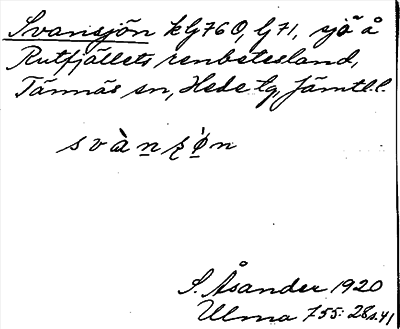 Svansjön kG760, G71, sjö å
Rutfjällets renbetesland,
Tännäs sn, Hede tg, Jämtl.l.
svànʂø̀n
S. Åsander 1920
Ulma 755:28 s.41